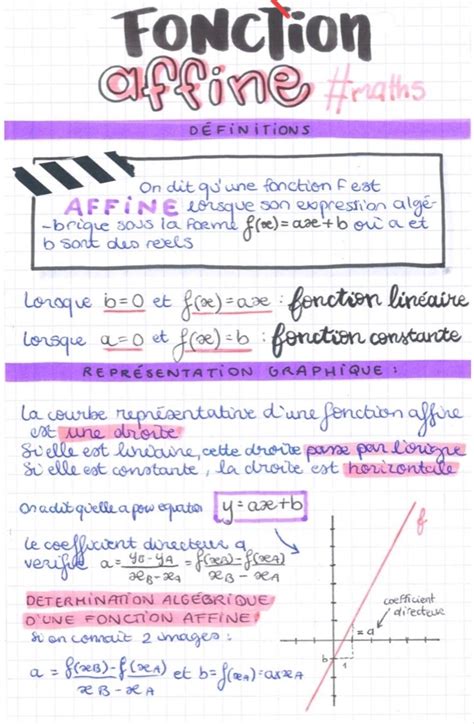 FONCTION
affine #maths
DÉFINITIONS
On dit qu'une fonction f est
AFFINE lorsque son expression algé-
-brique sous la forme f(x)=ax+b où a et
b sont des reels
Lorsque b=0 et f(x)=ax : fonction linéaire
Lorsque a=0 et f(x)=b : fonction constante
REPRÉSENTATION GRAPHIQUE :
La courbe représentative d'une fonction affine
est une droite
Si elle est linéaire, cette droite passe par l'origine
Si elle est constante, la droite est horizontale
On a dit qu'elle a pour equation y=ax+b
Le coefficient directeur a
verifie a = yB - yA / xB - xA = f(xB) - f(xA) / xB - xA
DETERMINATION ALGÉBRIQUE
D'UNE FONCTION AFFINE :
Si on connait 2 images :
a = f(xB) - f(xA) / xB - xA et b = f(xA) - axxA
f
coefficient
directeur
= a
b
1